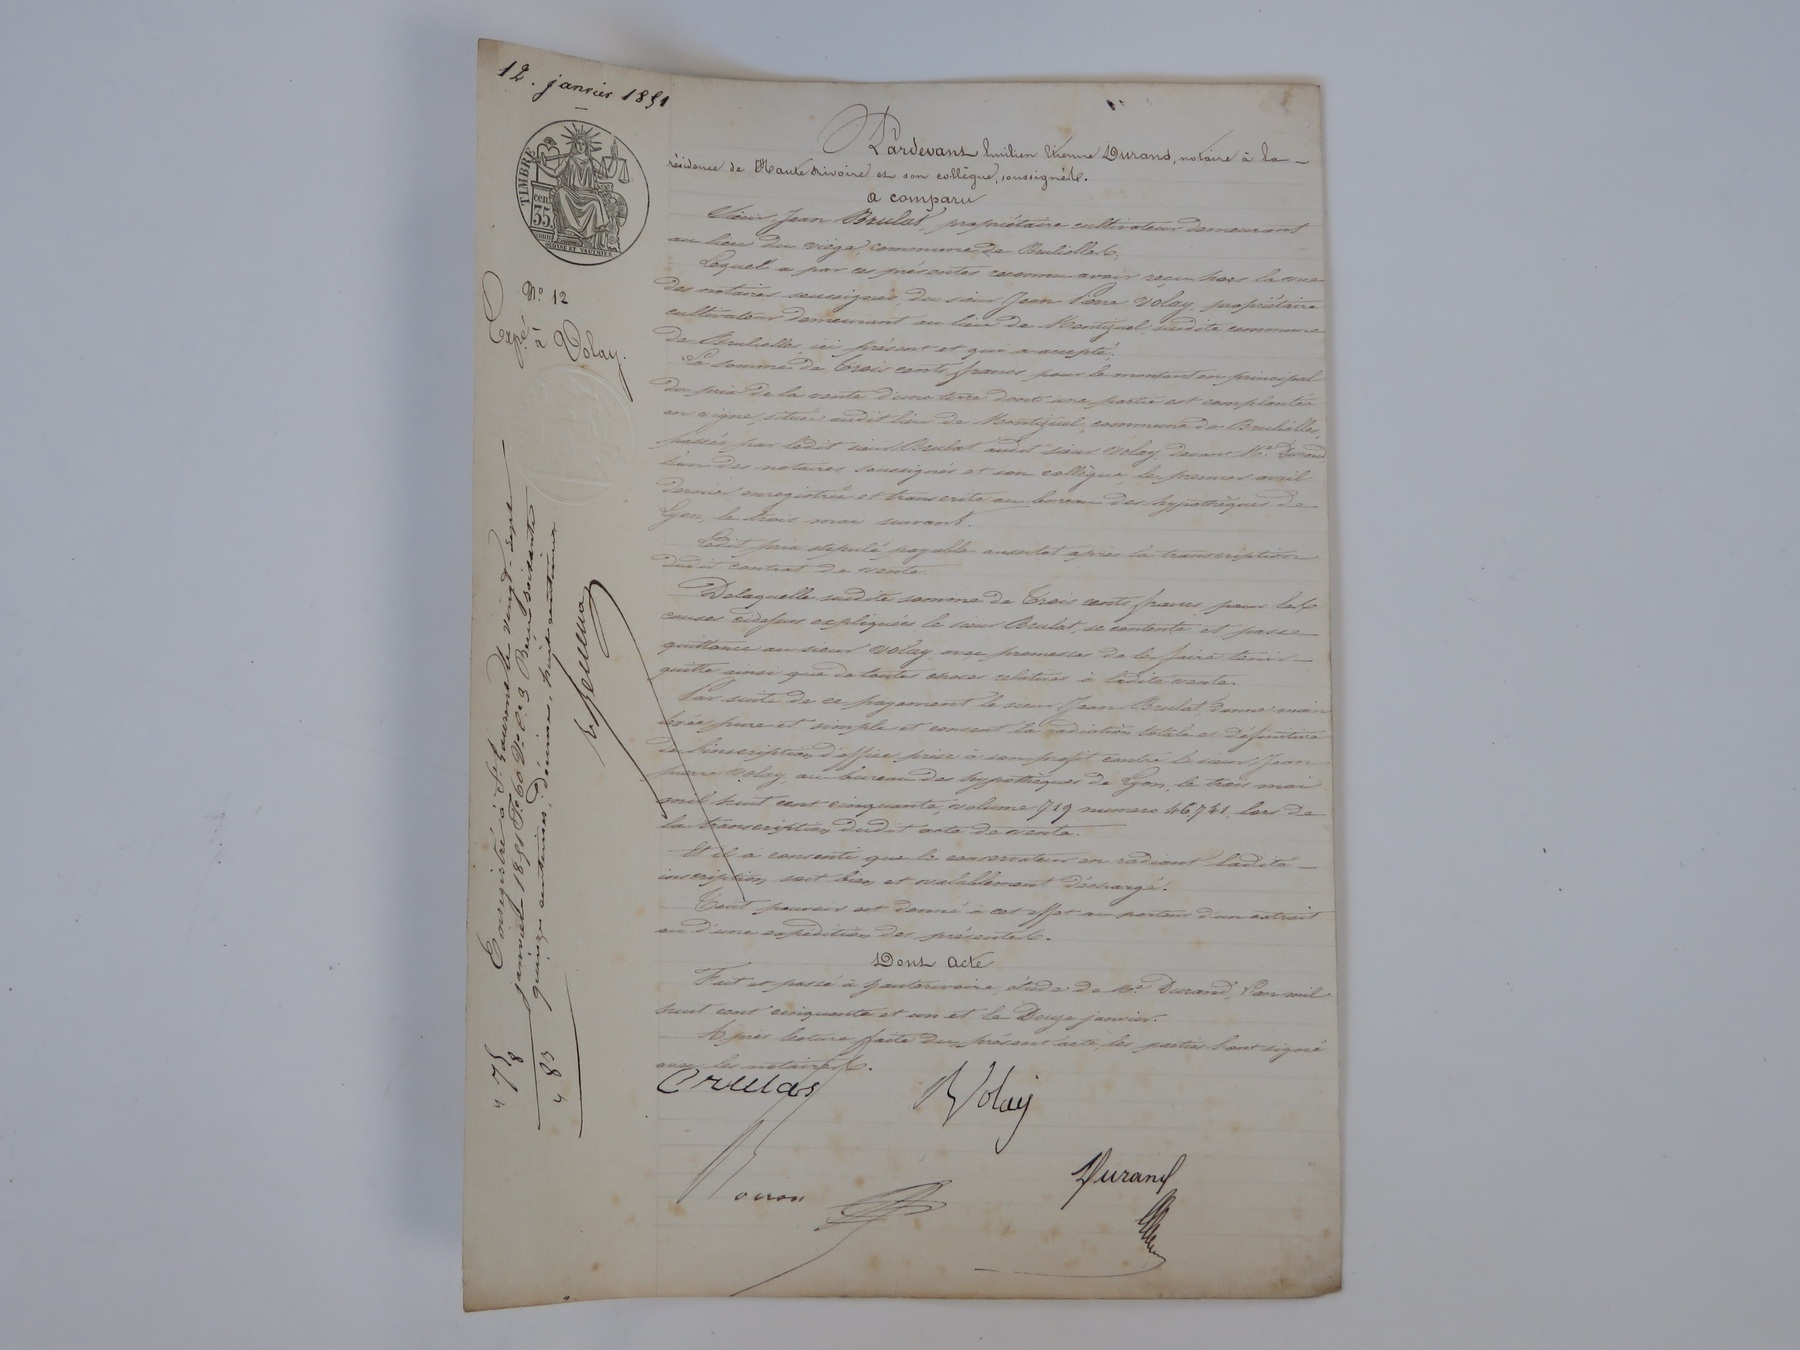 12. janvier 1851
TIMBRE
cent
35
N° 12
Exp.é à Volay.
Pardevant Durand, notaire à la
résidence de Haute Rivoire et son collègue, soussignés.
a comparu
Sieur Jean Brulat, propriétaire cultivateur demeurant
au lieu du commune de Brulliolles,
Lequel a par ces présentes reconnu avoir reçu hors la vue
des notaires soussignés, du sieur Jean Pierre Volay, propriétaire
cultivateur demeurant au lieu de susdite commune
de ici présent et qui a accepté,
La somme de trois cents francs pour le montant en principal
du prix de la vente d'une terre dont une partie est complantée
en vigne, située audit lieu de commune de
passée par ledit sieur Brulat audit sieur Volay devant Me. Durand
l'un des notaires soussignés et son collègue le premier avril
dernier, enregistrée et transcrite au bureau des hypothèques de
Lyon, le trois mai suivant.
Ledit prix stipulé payable aussitôt après la transcription
dudit contrat de vente.
De laquelle susdite somme de trois cents francs pour les
causes cidessus expliquées le sieur Brulat, se contente et passe
quittance au sieur Volay, avec promesses de le faire tenir
quitte ainsi que de toutes choses relatives à ladite vente.
Par suite de ce payement le sieur Jean Brulat, donne main
levée pure et simple et consent la radiation totale et définitive
de l'inscription d'office prise à son profit contre le sieur Jean
pierre Volay au bureau des hypothèques de Lyon, le trois mai
mil huit cent cinquante, volume 719 numero 46741, lors de
la transcription dudit acte de vente.
Et il a consenti que le conservateur en radiant ladite
inscription soit bien et valablement déchargé.
Tout pouvoir est donné à cet effet au porteur d'un extrait
ou d'une expédition des présentes.
Dont acte
Fait et passé à hauterivoire, étude de Me. Durand, l'an mil
huit cent cinquante et un et le Douze janvier.
Après lecture faite du présent acte, les parties l'ont signé
avec les notaires.
Brulat
Volay
Durand
Enregistré à St. Laurent le vingt-sept
janvier 1851 F° 60 V° C. 3 Reçu soixante
quinze centimes, décimes, huit centimes
75
8
83